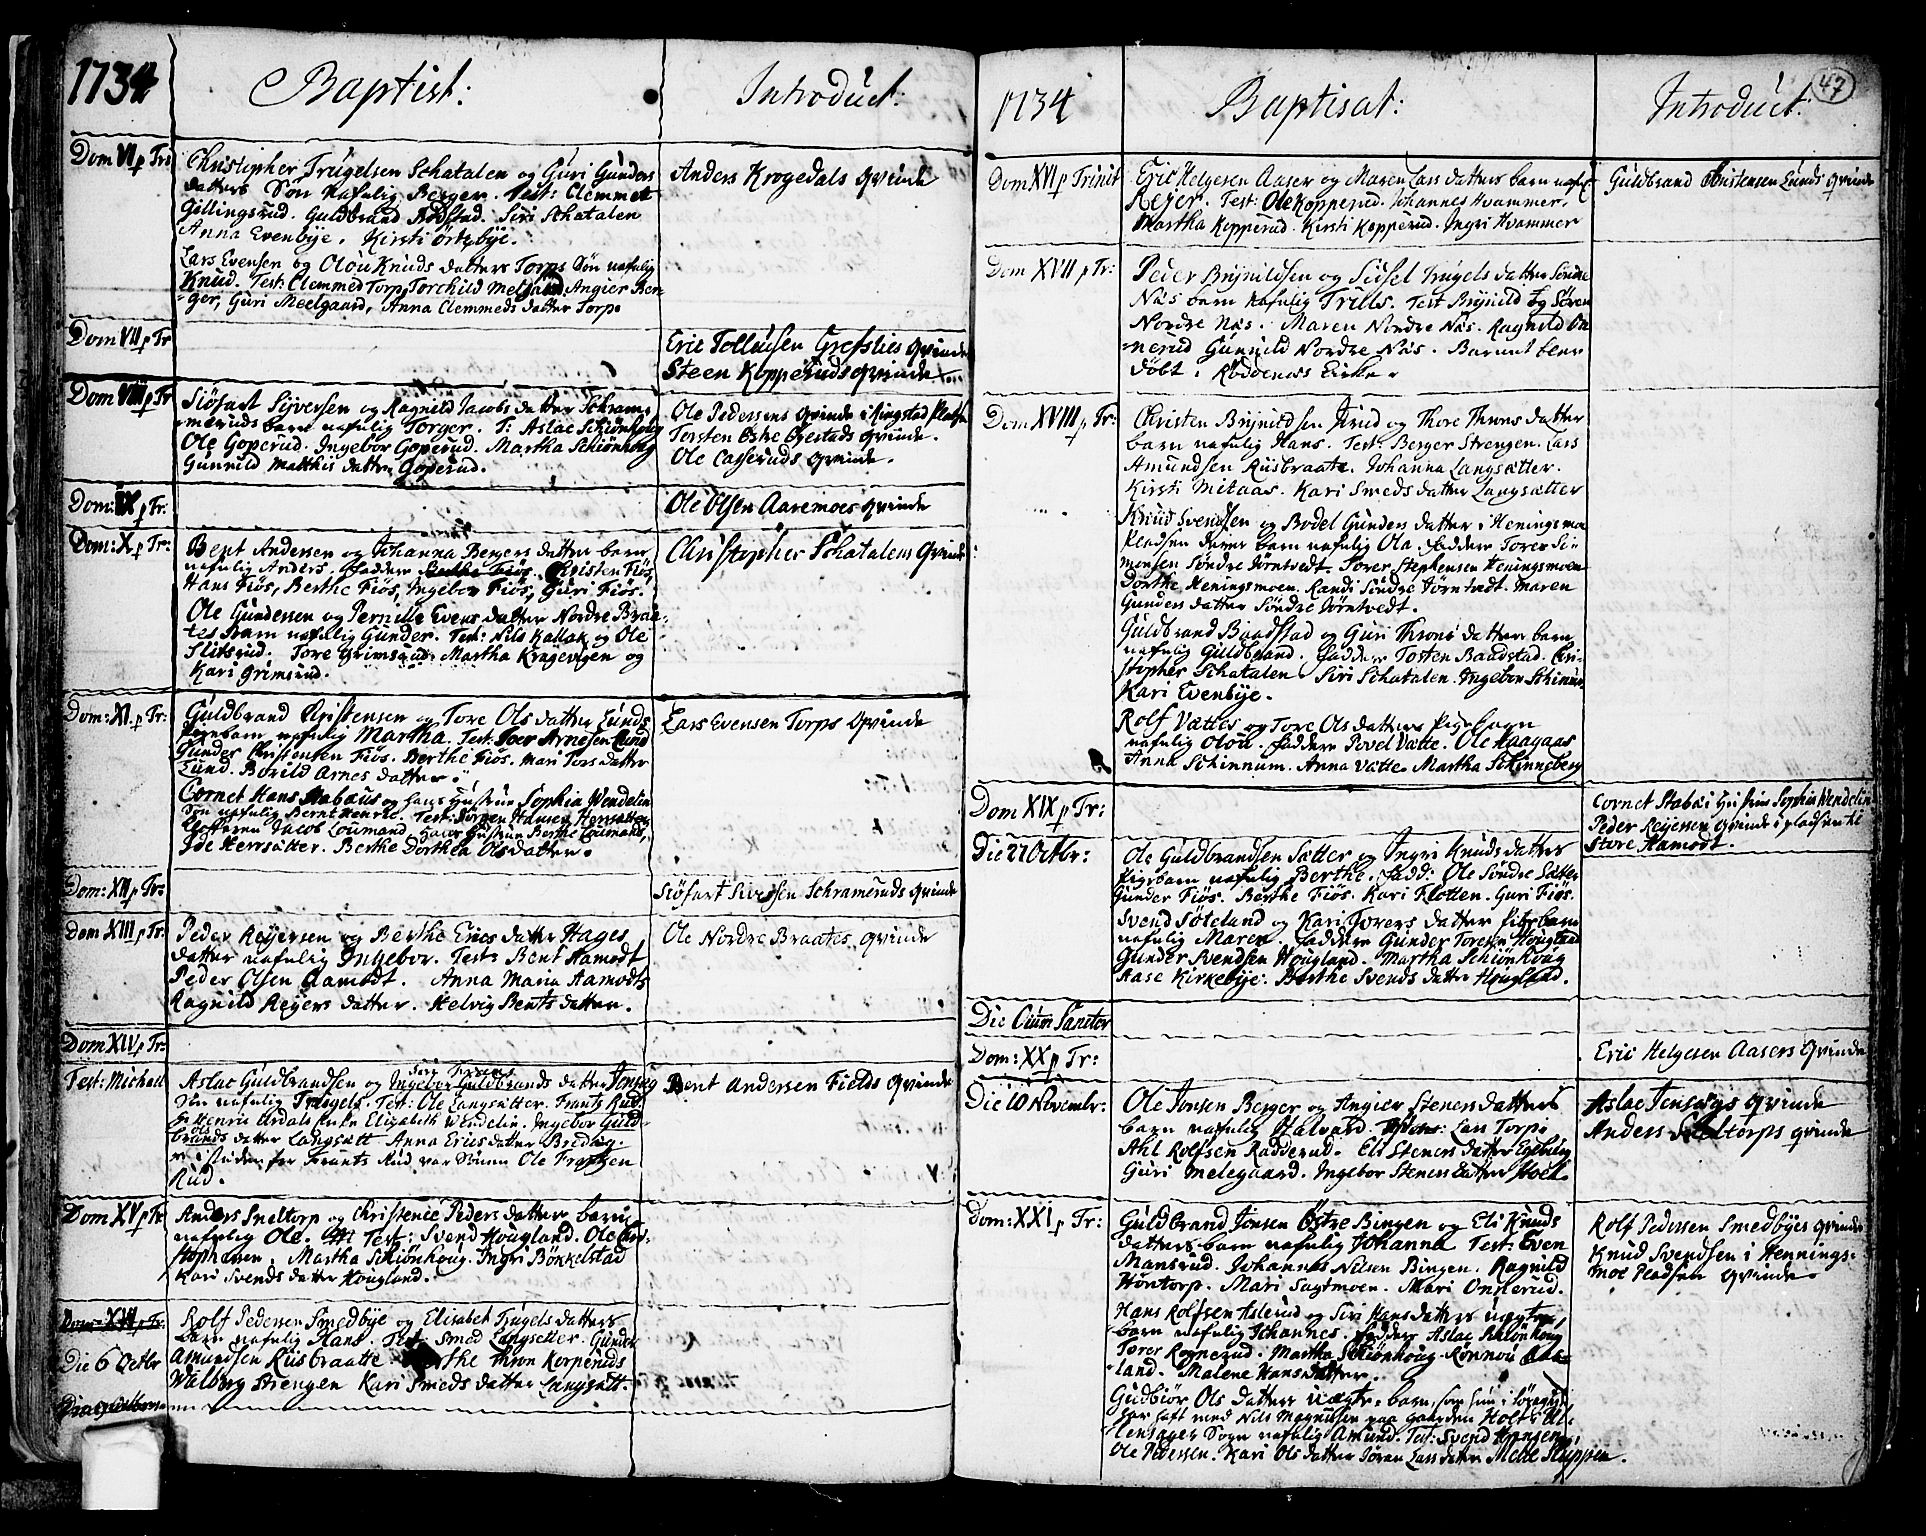 1734
Baptist:
Introduct:
Dom VI p Tri
Christopher Trugelsen Schatalen og Guri Gunders
datters Søn nafnlig Berger. Test: Clemmet
Gillingsrud. Guldbrand Rødstad. Siri Schatalen
Anna Evenbye. Kirsti Örtebye.
Anders Krogedals qvinde
Lars Evensen og Olou Knuds datters Torps Søn nafnlig
Knud. Test: Clemmed Torp, Torchild Melgaard. Angier Ber-
ger, Guri Meelgaard, Anna Clemmeds datter Torp.
Dom VII p Tr
Eric Tollefsen Grefslies qvinde
Steen Kopperuds qvinde
Dom VIII p Tr
Siöfast Sijversen og Ragnild Jacobs datter Schram-
meruds barn nafnlig Torger. T: Aslac Schiönhoug
Ole Goperud. Ingebor Goperud. Martha Schiönhoug
Gunnild Matthis datter Goperud.
Ole Pedersens qvinde i Ringstad Pladsen
Torsten Østre Øvestads qvinde.
Ole Casseruds qvinde.
Dom: IX p Tr:
Ole Olsen Aaremoes qvinde
Dom: X p Tr:
Bent Andersen og Johanna Bergers datter barn
nafnlig Anders. Faddere Berthe Fiös. Christen Fiös
Hans Fiös, Berthe Fiös, Ingebor Fiös, Guri Fiös.
Christopher Schatalens Qvinde
Ole Gundersen og Pernille Evens datter Nordre Braa-
tes Barn nafnlig Gunder. Test: Nils Kallak og Ole
Slitsrud. Tore Grimsrud. Martha Kragevigen og
Kari Grimsrud.
Dom: XI p Tr:
Guldbrand Christensen og Tore Ols datter Lunds
Pigebarn nafnlig Martha. Test: Toer Arnesen Lund
Gunder Christensen Fiös. Berthe Fiös. Mari Tors datter
Lund. Borild Arnes datter.
Lars Evensen Torps Qvinde
Cornet Hans Stabæus og hans Hustrue Sophia Wendelin
Søn nafnlig Bernt Henric. Test: Jörgen Hansen Herrsætter
Klocheren Jacob Loumand hans Hustrue Berthe Loumands,
Ide Herrsätter. Berthe Dorthea Olsdatter.
Dom: XII p Tr:
Siöfast Siversen Schrameruds qvinde
Dom XIII p Tr:
Peder Reijersen og Berthe Erics datter Hages
datter nafnlig Ingebor. Test: Bent Aamodt
Peder Olsen Aamodt. Anna Maria Aamodts
Ragnild Reijers datter. Helvig Bents datter.
Ole Nordre Braates qvinde
Dom XIV p Tr:
Fest: Michael
Aslac Guldbrandsen og Ingebor Guldbrands datter Jonsøg
Søn nafnlig Trugels. Test: Ole Langsätter. Frants Rud.
Elizabeth Wendelin. Ingebor Guld
brands datter Langsätt Anna Erics datter Bredsag.
isteden for Frants Rud var Sönnen Ole Frantzen
Rud.
Bent Andersen Fields qvinde
Dom XV p Tr
Anders Sneltorp og Christence Peders datter barn
nafnlig Ole. Test: Svend Hougland. Ole Chri-
stophersen. Martha Schiönhoug. Ingri Bökkelstad
Kari Svends datter Hougland.
Dom XVI p Tr:
Die 6 Octbr
Rolf Pedersen Smedbye og Elisabet Trugels datters
Barn nafnlig Hans. Test: Smed Langsetter. Gunder
Amundsen Riisbraatte. Berthe Thron Korperuds
Walborg Strengen Kari Smeds datter Langsätt.
1734
Baptisat:
Introduct:
47
Dom XVI p Trinit
Eric Helgesen Aaser og Maren Lars datters barn nafnl
Reyer. Test: Ole Kopperud. Johannes Hvammer.
Martha Kopperud. Kirsti Kopperud. Ingri Hvammer
Guldbrand Christensen Lunds qvinde
Dom XVII p Tr:
Peder Brijnildsen og Sidsel Trugels datter Söndre
Näs barn nafnlig Trills. Test Brijnild og Sören
Nordre Näs. Maren Nordre Näs. Ragnild On-
nerud Gunnild Nordre Näs. Barnet blev
döbt i Röddenes Kirke.
Dom XVIII p Tr:
Christen Brijnildsen Krud og Thore Throns datter
barn nafnlig Hans. Test: Berger Strengen. Lars
Amundsen Riisbraate. Johanna Langsætter.
Kirsti Mitaas. Kari Smeds datter Langsætter
Knud Svendsen og Bodel Gunders datter i Henings mo
Pladsen deres barn nafnlig Ola. Faddere Tores Si-
monsen Söndre Törntvedt. Torer Stephensen Heningsmoen
Dorthe Heningsmoen. Randi Söndre Törntvedt. Maren
Gunders datter Söndre Törntvedt.
Guldbrand Baadstad og Guri Throns datter barn
nafnlig Guldbrand. Faddere Tosten Baadstad. Chri-
stopher Schatalen. Siri Schatalen. Ingebor Schinnes
Kari Evenbije.
Rolf Vættes og Tore Ols datters Pigebarn
nafnlig Olöu. Faddere Povel Vætte. Ole Haagaas
Anne Schinnum. Anna Vätte. Martha Schinneberg
Dom XIX p Tr:
Cornet Stabæi Hustrue Sophia Wendelin
Peder Reijersens qvinde i pladsen til
Store Aamodt.
Die 27 Octbr:
Ole Guldbrandsen Sætter og Ingri Knuds datters
Pigebarn nafnlig Berthe. Fadd: Ole Söndre Sätter
Gunder Fiös. Berthe Fiös. Kari Flotten. Guri Fiös.
Svend Söteland og Kari Torers datter Pigebarn
nafnlig Maren Faddere Gunder Toresen Hougland
Gunder Svendsen Hougland. Martha Schiönhoug
Aase Kirkebije. Berthe Svends datter Hougland.
Die Oium Sanctor
Dom: XX p Tr:
Eric Helgesen Aasers qvinde
Die 10 Novembr:
Ole Jonsen Berger og Angier Stenersdatters
barn nafnlig Halvard. Test: Lars Torp.
Ahl Rolfsen Radderud. Eli Steners datter Egeberg
Guri Melegaard. Ingebor Steners datter Holt.
Aslac Jensøgs qvinde
Anders Sneltorps qvinde
Dom: XXI p Tr:
Guldbrand Jonsen Östre Bingen og Eli Knuds
datters barn nafnlig Johanna Test: Even
Mansrud. Johannes Nilsen Bingen. Ragnild
Horntorp. Mari Sagtmoen. Mari Onnerud.
Rolf Pedersen Smedbyes qvinde
Knud Svendsen i Hennings-
moe Pladsen qvinde.
Hans Rolfsen Aslerud og Siri Hansdatters uægte
barn nafnlig Johannes. Faddere Aslac Schiönhoug
Torer Rognerud. Martha Schiönhoug. Rönnou Aas-
land. Malene Hansdatter.
Gudbiör Ols datters uægte barn, som hun i
har haft med Nils Magnussen paa gaarden Holt i Ul-
lensager Sogn nafnlig Amund. Test: Svend Hansen,
Ole Pedersen. Kari Ols datter Jöran Lars datter Mette Kluppen.